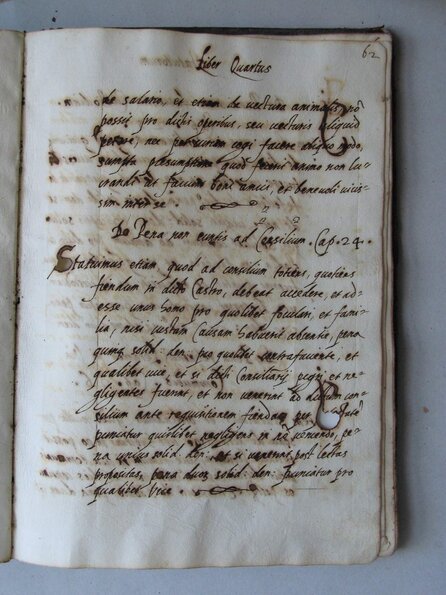 62
Liber Quartus
de salario, is etiam de vectura animalis, nõ
possit pro dictis operibus, seu vecturis aliquid
petere, nec per curiam cogi facere aliquo modo,
sumpta presumptione quod fuerit animo non lu-
crandi ut faciunt boni amici, et benevoli vicis-
sim inter se.
De Pena non euntis ad Consilium. Cap. 24.
Statuimus etiam, quod ad consilium totiens, quotiens
fiendum in dicto Castro, debeat accedere, et ad-
esse unus homo pro quolibet foculari, et fami-
lia, nisi iustam Causam habuerit absentie, pena
quinq; solid: den: pro quolibet contrafaciente, et
qualibet vice, et si dicti Consiliarij pigri et ne-
gligentes fuerint, et non venerint ad dictum con-
silium ante requisitionem fiendam per
puniatur quilibet negligens in nõ veniendo, pe-
na unius solid: den: et si venerint post lectas
propositas, pena duor, solid: den: puniatur pro
qualibet vice.